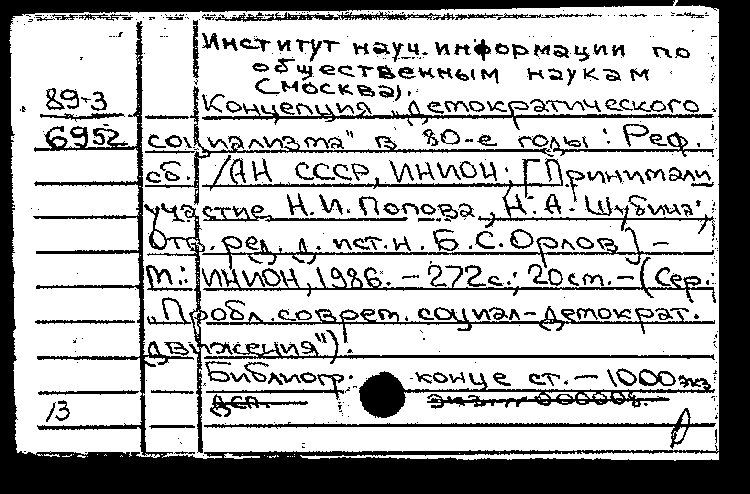 Институт науч. информации по
общественным наукам
(Москва).
89-3
Концепция „Демократического
6952
социализма" в 80-е годы: Реф.
сб. /АН СССР, ИНИОН; [Принимали
участие Н.И. Попова, Н.А. Шубина;
Отв. ред. д. ист. н. Б.С. Орлов] -
М.: ИНИОН, 1986. - 272с.; 20см. - (Сер.:
„Пробл. соврем. социал-демократ.
движения").
Библиогр. конце ст. - 1000 экз
13
ДСП.